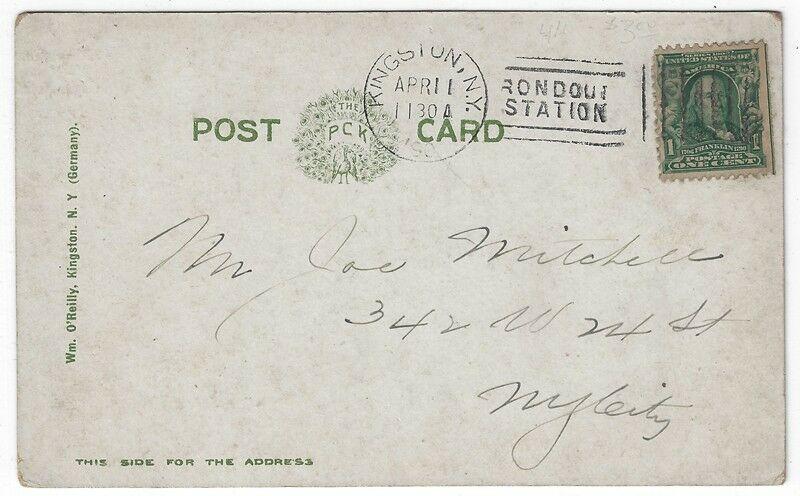 44 $3.00
KINGSTON, N.Y.
APR 11
1130A
RONDOUT
STATION
SERIES 1902
UNITED STATES OF
AMERICA
1 1
1706 FRANKLIN 1790
POSTAGE
ONE CENT
POST CARD
THE
PCK
Wm. O'Reilly, Kingston. N. Y (Germany).
Mr Joe Mitchell
342 W 24 St
NY City
THIS SIDE FOR THE ADDRESS